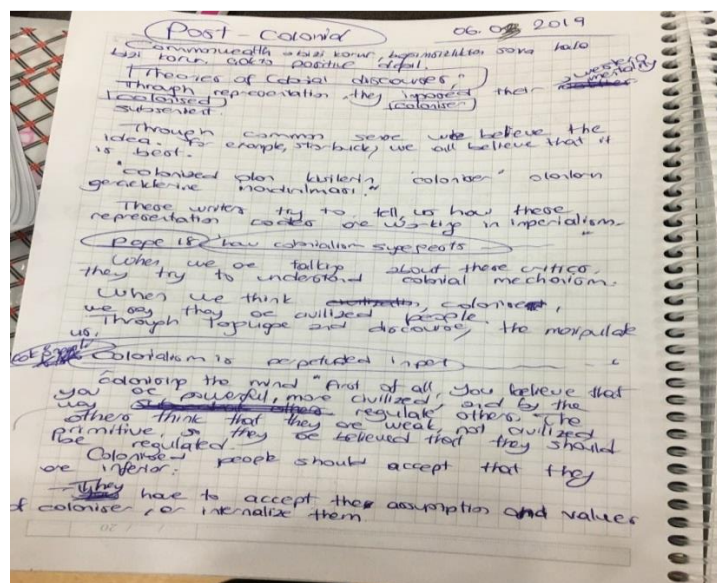 Post-colonial 2019
Commonwealth bizi korur,
bizi korur, positive
"Theories of Colonial discourses,"
western
mentality
Through representation they imposed their
colonised coloniser
Through common sense we believe the
idea. For example, starbucks, we all believe that it
is best.
"colonized olan kişilerin "coloniser" olanların
gerçeklerine inandırılması."
These writers try to tell us how these
representation codes are working in imperialism.
Page 18 how colonialism
When we are talking about these critics,
they try to understand colonial mechanism.
When we think coloniser,
we say they are civilized people.
Through language and discourse, the manipulate
us.
Colonialism is perpetuated in part
colonising the mind "first of all, you believe that
you are powerful, more civilized and by the
way regulate others. The
others think that they are weak, not civilized
primitive so they are believed that they should
be regulated.
Colonised people should accept that they
are inferior.
They have to accept the assumption and values
of coloniser, or internalize them.